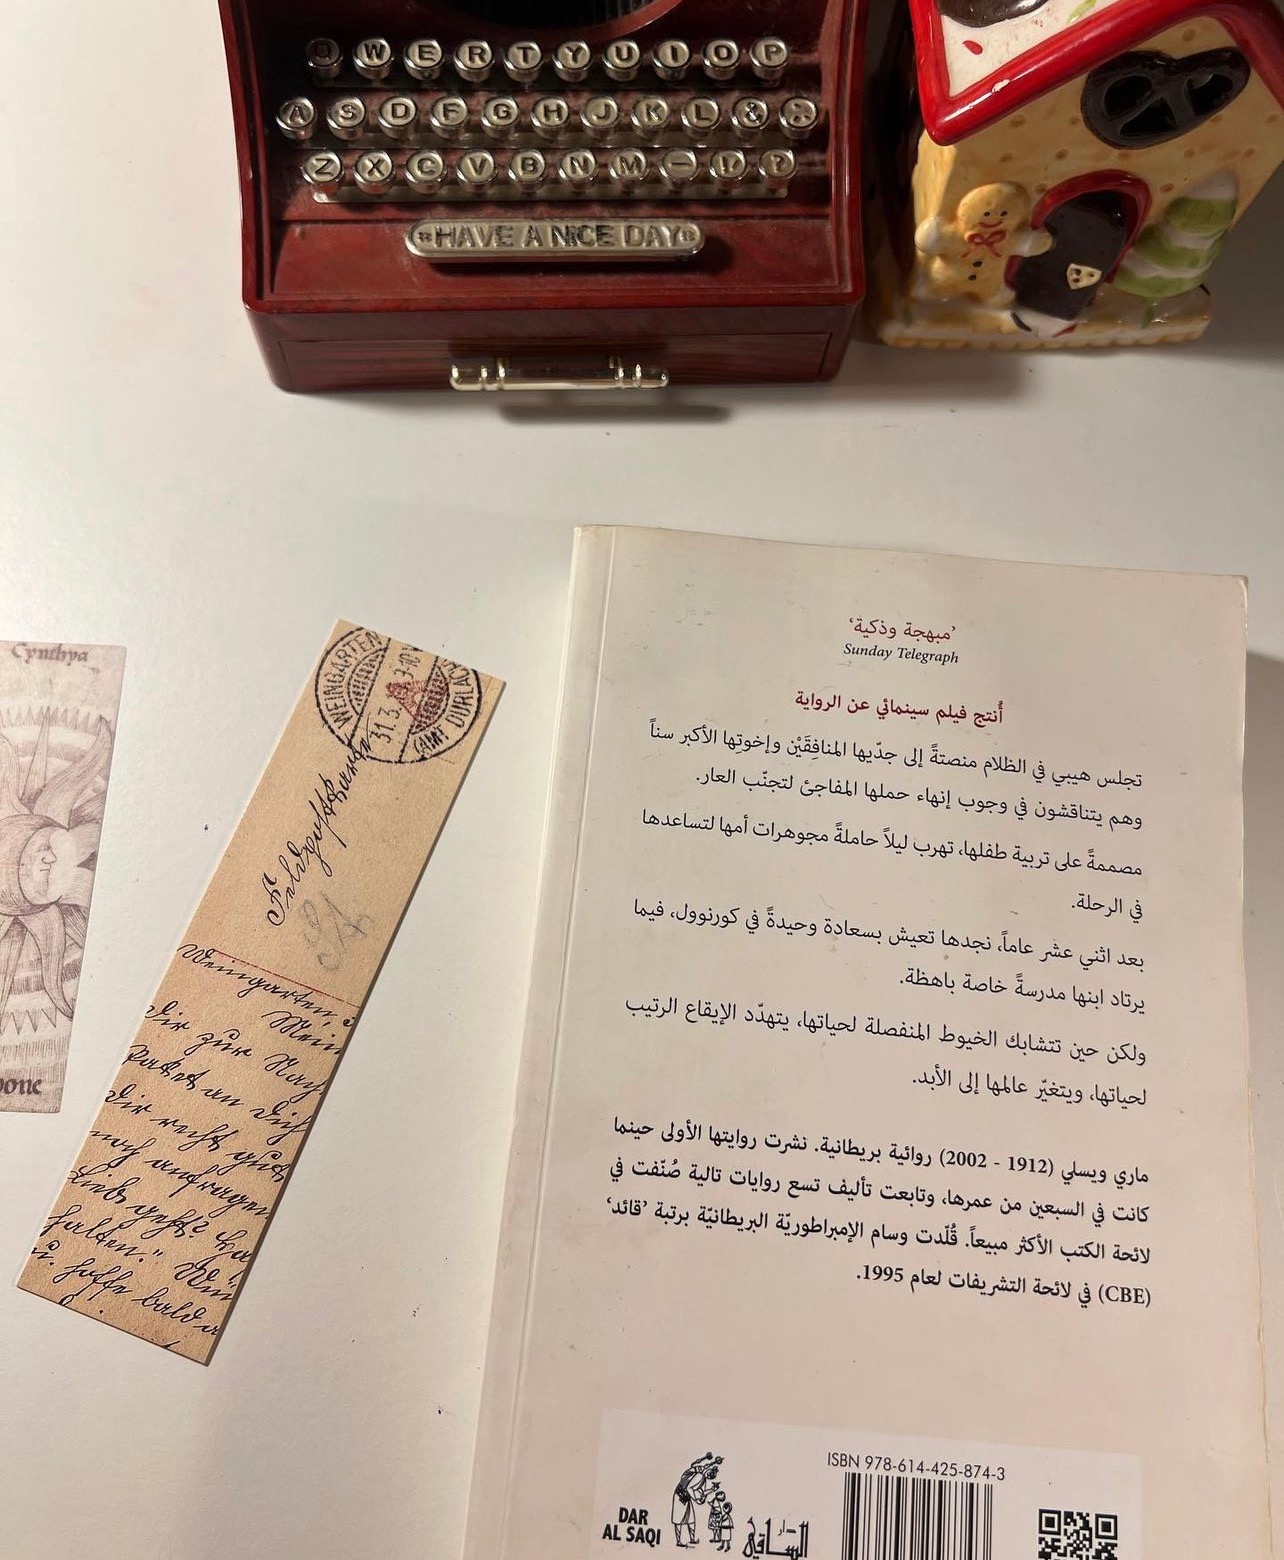 Q W E R T Y U I O P
A S D F G H J K L & :
Z X C V B N M — !/ ?
HAVE A NICE DAY
Cynthya
WEINGARTEN
(AMT DURLACH)
31.3.
Feldpostkarte
Weingarten,
Mein
Dir zur Nach
Paket an Dich
Dir recht gut
noch anfragen
Lieb geht?
halten." Wei
u. hoffe bald
'مبهجة وذكية'
Sunday Telegraph
أُنتج فيلم سينمائي عن الرواية
تجلس هيبي في الظلام منصتةً إلى جدّيها المنافِقَيْن وإخوتِها الأكبر سناً
وهم يتناقشون في وجوب إنهاء حملها المفاجئ لتجنّب العار.
مصممةً على تربية طفلها، تهرب ليلاً حاملةً مجوهرات أمها لتساعدها
في الرحلة.
بعد اثني عشر عاماً، نجدها تعيش بسعادة وحيدةً في كورنوول، فيما
يرتاد ابنها مدرسةً خاصة باهظة.
ولكن حين تتشابك الخيوط المنفصلة لحياتها، يتهدّد الإيقاع الرتيب
لحياتها، ويتغيّر عالمها إلى الأبد.
ماري ويسلي (1912 - 2002) روائية بريطانية. نشرت روايتها الأولى حينما
كانت في السبعين من عمرها، وتابعت تأليف تسع روايات تالية صُنّفت في
لائحة الكتب الأكثر مبيعاً. قُلّدت وسام الإمبراطوريّة البريطانيّة برتبة 'قائد'
(CBE) في لائحة التشريفات لعام 1995.
ISBN 978-614-425-874-3
DAR
AL SAQI
دار
الساقي